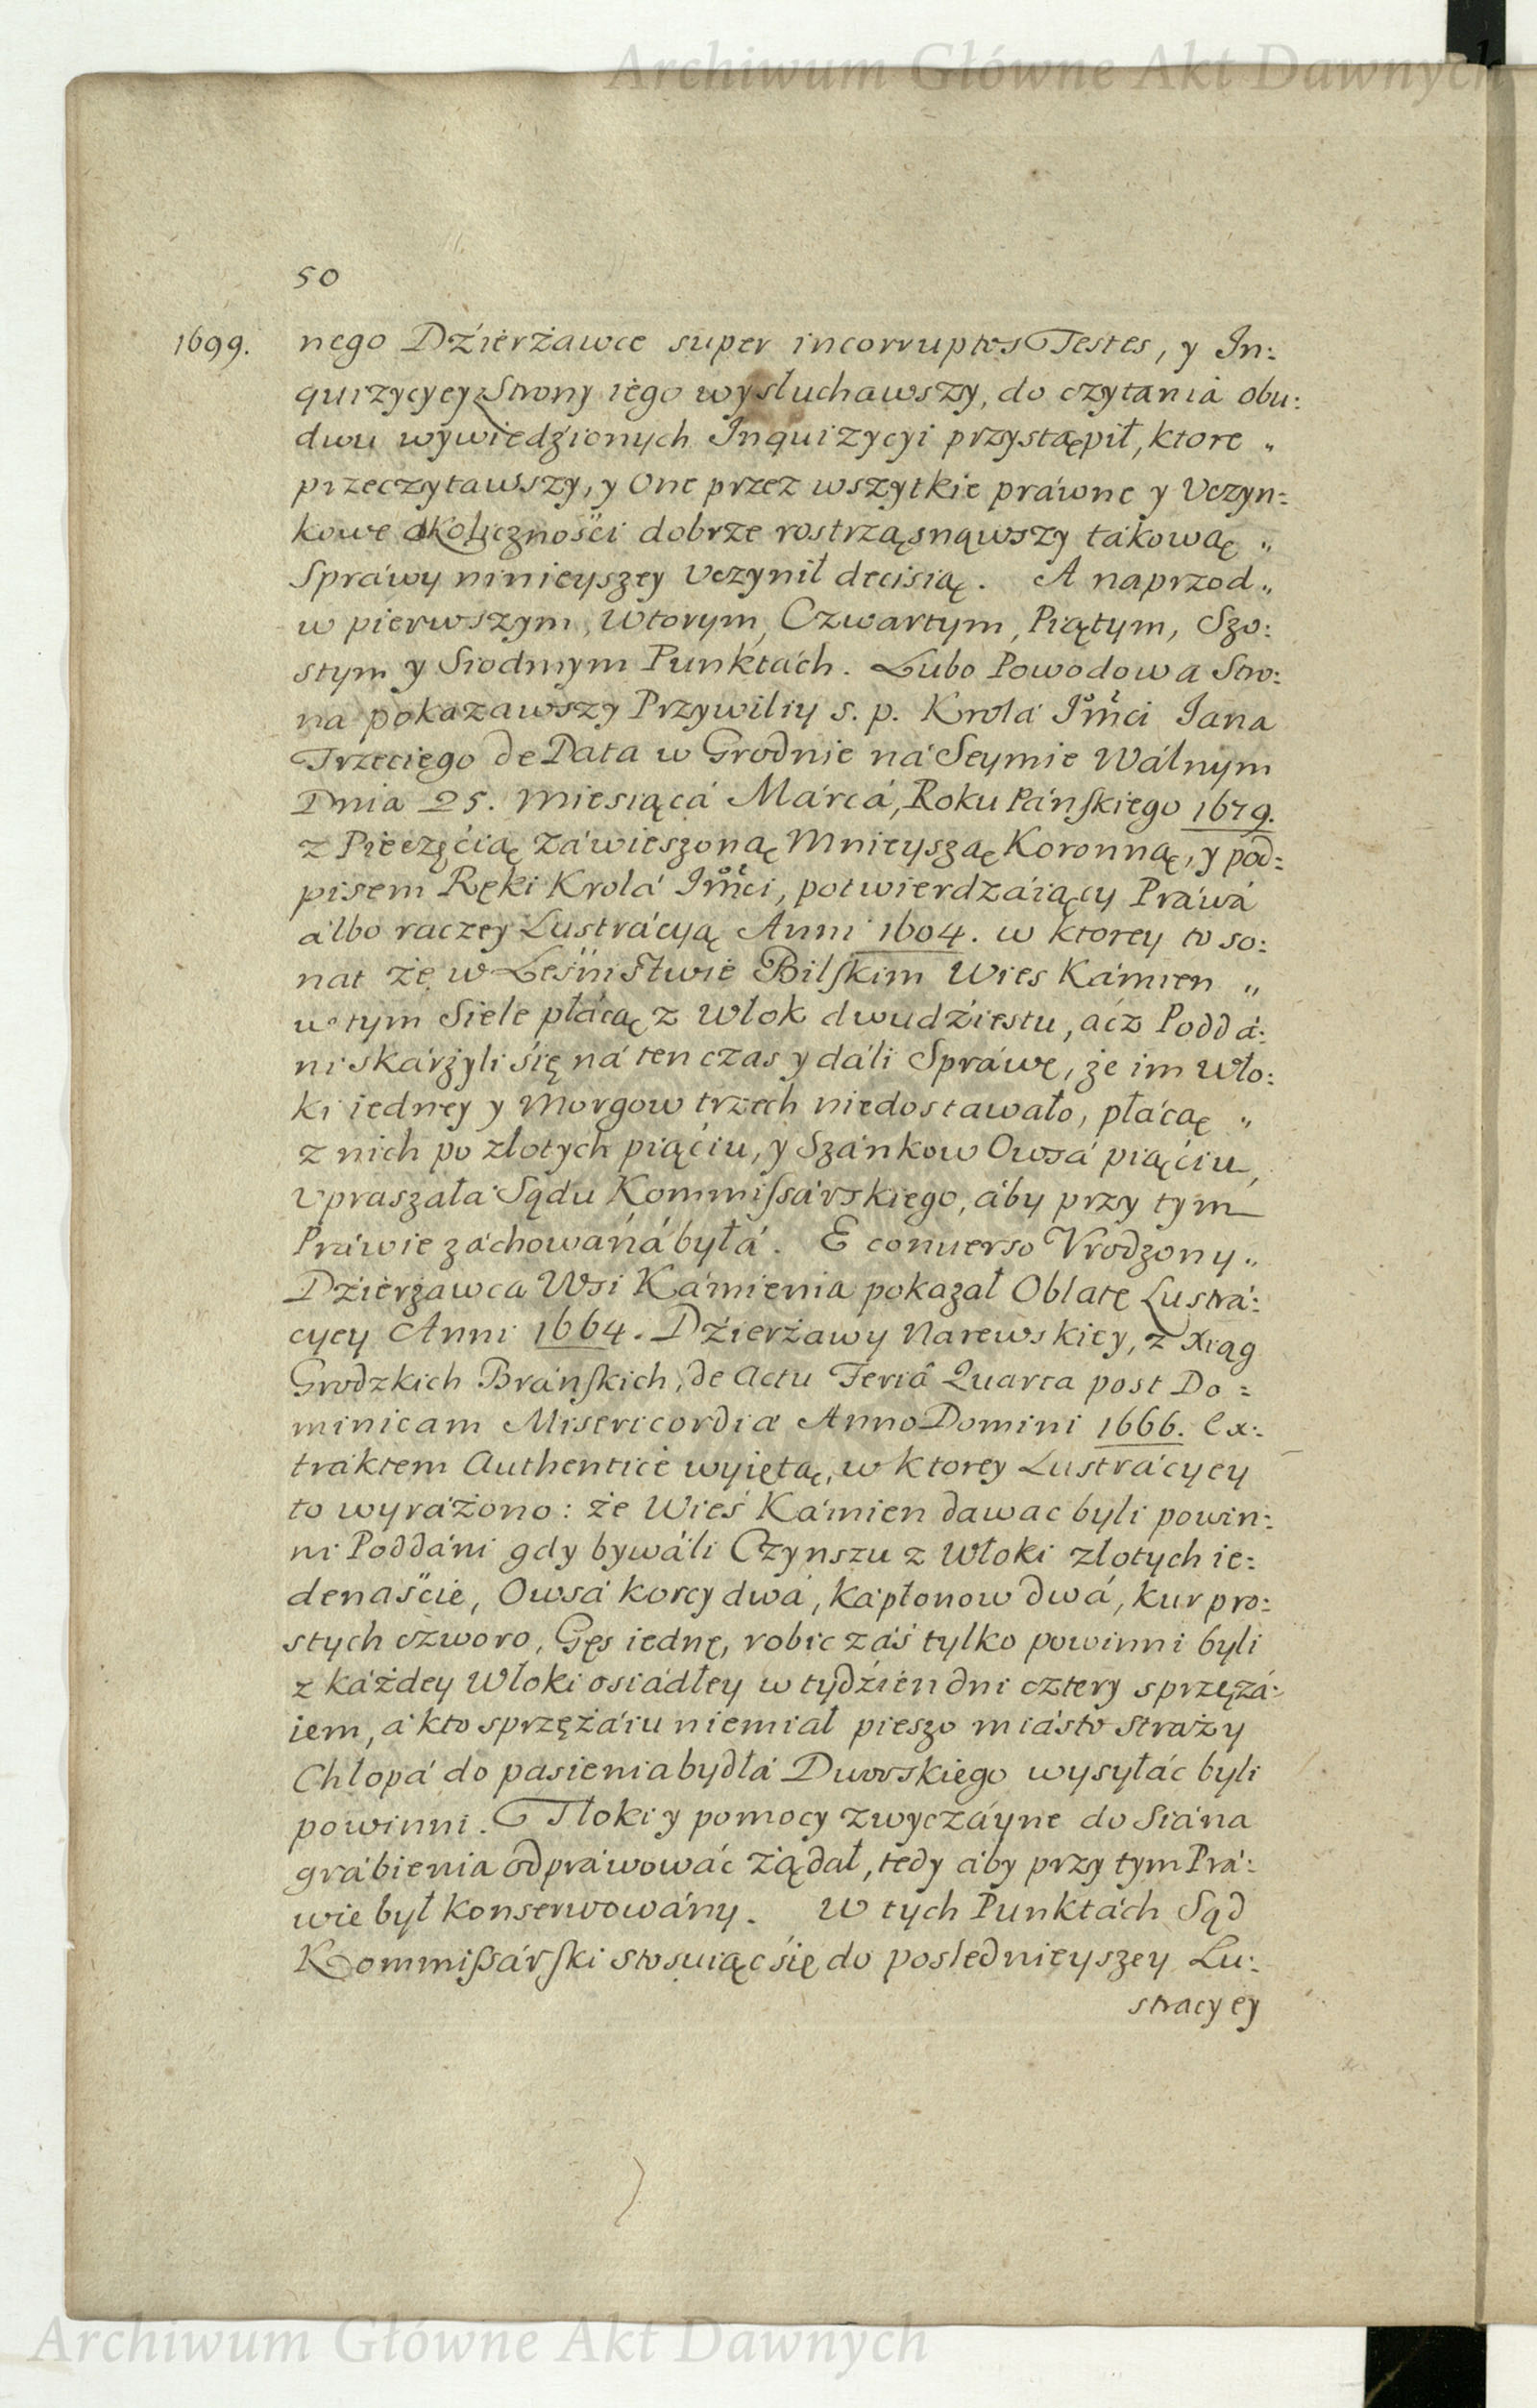 Archiwum Główne Akt Dawnych
50
1699. nego Dźierżawce super incorruptos Testes, y In:
quizycyey Strony iego wysłuchawszy, do czytania obu:
dwu wywiedźionych Inquizycyi przystąpił, ktore „
przeczytawszy, y One przez wszytkie práwne y Vczyn:
kowe okoliczności dobrze rostrząsnąwszy tákową „
Spráwy ninieyszey Vczynił decisią. A naprzod „
w pierwszym, Wtorym, Czwartym, Piątym, Szo:
stym y Siodmym Punktách. Lubo Powodowa Stro:
na pokazawszy Przywiliy s. p. Krolá Jmci Jana
Trzeciego de Data w Grodnie ná Seymie Wálnym
Dnia 25. Miesiącá Márcá, Roku Páńskiego 1679.
z Pieczęćią záwieszoną Mnieyszą Koronną, y pod:
pisem Ręki Krolá Jmci, potwierdzáiący Práwá
álbo raczey Lustrácyą Anni 1604. w ktorey to so:
nat że w Leśnistwie Bilskim Wies Kámien „
w tym Siele płácą z Włok dwudźiestu, ácz Poddá:
ni skárżyli się ná ten czas y dáli Spráwę, że im Wło:
ki iedney y Morgow trzech niedostawało, płácą „
z nich po złotych piąćiu, y Szánkow Owsá piąćiu,
Vpraszałá Sądu Kommissárskiego, áby przy tym
Práwie záchowáná byłá. E conuerso Vrodzony „
Dźierżawca Wsi Kámienia pokazał Oblatę Lustrá:
cyey Anni 1664. Dźierżawy Narewskiey, z Xiąg
Grodzkich Bráńskich, de Actu Feriâ Quarta post Do:
minicam Misericordiæ Anno Domini 1666. Ex:
tráktem Authenticè wyiętą, w ktorey Lustrácyey
to wyráżono: że Wieś Kámien dawac byli powin:
ni Poddáni gdy bywáli Czynszu z Włoki złotych ie:
denaście, Owsá korcy dwá, Kápłonow dwá, Kur pro:
stych czworo, Gęs iednę, robic záś tylko powinni byli
z każdey Włoki osiádłey w tydźień dni cztery sprzężá:
iem, á kto sprzężáiu niemiał pieszo miásto Straży
Chłopá do pasienia bydłá Dworskiego wysyłác byli
powinni. Tłoki y pomocy zwyczáyne do Siána
grábienia odpráwowác żądał, tedy áby przy tym Prá:
wie był konserwowány. W tych Punktách Sąd
Kommissárski stosuiąc się do poslednieyszey Lu:
stracyey
Archiwum Główne Akt Dawnych